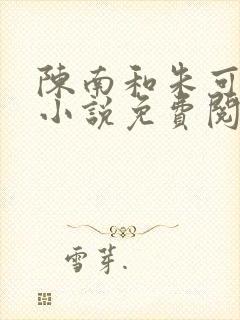 陳南和朱可
小說免費閱
雪芽.